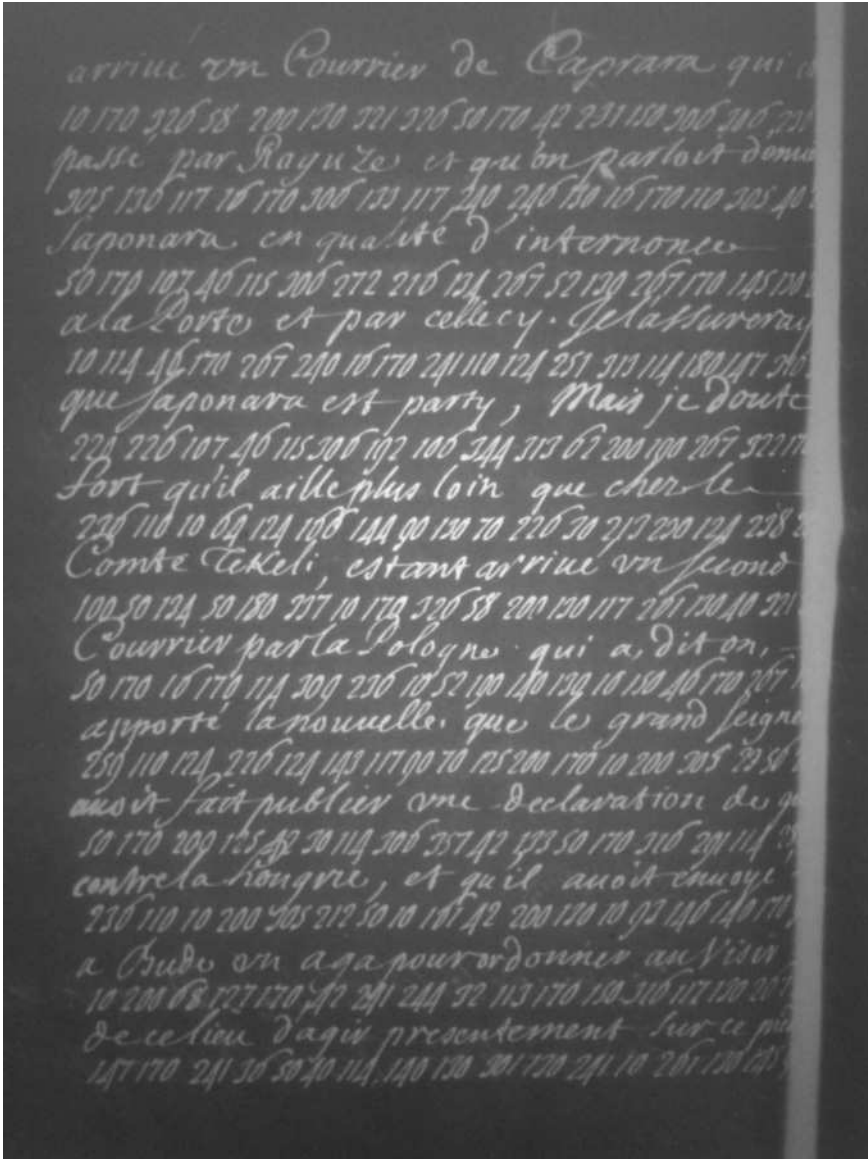 arriué vn Courrier de Caprara qui
10 170 326 58 200 130 321 326 50 170 42 231 150 306 306
passé par Raguze et qu'on parloit
305 136 117 16 170 306 133 117 240 246 130 16 170 110 305 40
Saponara en qualité d'internonce
50 170 107 46 115 306 272 216 134 267 52 139 267 170 145 130
a la Porte et par cellecy. Je lassureray
10 114 46 170 267 240 16 170 241 110 124 251 313 114 180 147
que Saponara est party, Mais je doute
224 226 107 46 115 306 192 106 344 313 62 200 190 267 322
fort qu'il aille plus loin que cher le
236 110 10 64 124 166 144 90 130 70 226 30 213 230 124 238
Comte Tekeli, estant arriue vn second
100 50 134 50 180 337 10 170 326 58 200 130 117 261 130 40 321
Courrier par la Pologne qui a, dit on,
50 170 16 170 114 309 236 10 52 190 140 139 10 150 46 170 267
apporté la nouuelle que le grand seigne
259 110 124 226 124 143 117 90 70 125 200 170 10 200 305
auoit fait publier vne declaration de
50 170 209 125 42 30 114 306 357 42 133 50 170 316 291 114
contre la hongrie, et qu'il auoit enuoyé
236 110 10 200 305 212 50 10 161 42 200 120 10 93 146 140 170
a Bude vn aga pour ordonner au Visir
10 200 68 127 170 42 291 244 32 113 170 150 316 112 120
de ce lieu d'agir presentement sur ce
147 170 241 36 50 40 114 140 130 301 120 241 10 261 130